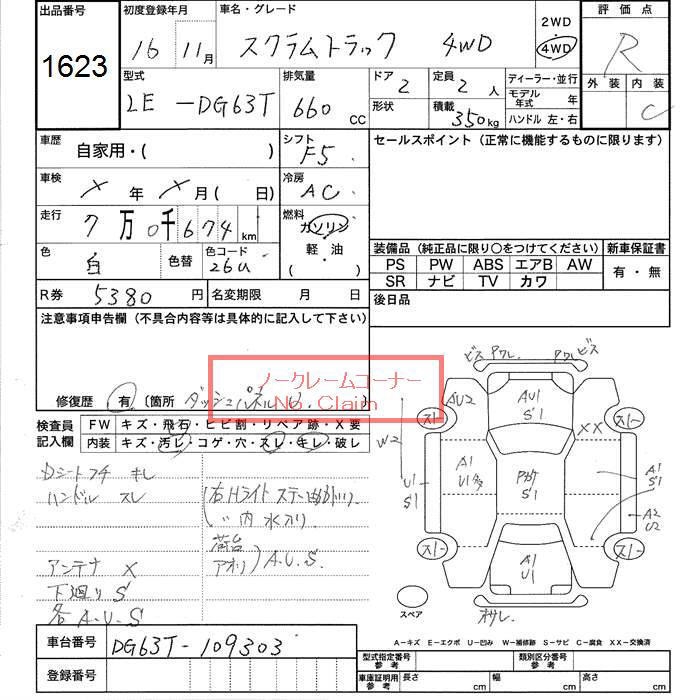 出品番号
1623
初度登録年月
16 11月
車名・グレード
スクラムトラック 4WD
2WD
4WD
評価点
R
外装 内装
C
型式
LE-DG63T
排気量
660 CC
ドア
2
形状
定員
2人
積載
350kg
ディーラー・並行
モデル年式 年
ハンドル 左・右
車歴
自家用・( )
シフト
F5
セールスポイント(正常に機能するものに限ります)
車検
X年X月( 日)
冷房
AC
走行
7万0千674km
燃料
ガソリン
軽・油
( ・ )
色
白
色替
色コード
26U
装備品(純正品に限り○をつけてください)
新車保証書
PS PW ABS エアB AW
SR ナビ TV カワ
有・無
R券 5380円
名変期限 月 日
後日品
注意事項申告欄(不具合内容等は具体的に記入して下さい)
ノークレームコーナー
No. Claim
修復歴 有 〔箇所 ダッシュパネル
検査員記入欄
FW キズ・飛石・ヒビ割・リペア跡・X要
内装 キズ・汚レ・コゲ・穴・スレ・キレ・破レ
Dシートフチ キレ
ハンドル スレ
右Hライト ステー曲がり
〃 内 水入り
荷台
アオリ A.U.S
アンテナ X
下廻り S
各A.U.S
ビス ワレ ワレ ビス
AU2
AU1
S1
XX
W2
U1
S1
A1
U1多
S1
A1
S1
A2
U2
A1
U1
スレー
スレー
スレー
スレー
スペア
オサレ
車台番号 DG63T-109303
登録番号
A-キズ E-エクボ U-凹み W-補修跡 S-サビ C-腐食 XX-交換済
型式指定番号 参考
類別区分番号 参考
車庫証明用 参考
長さ cm
幅 cm
高さ cm